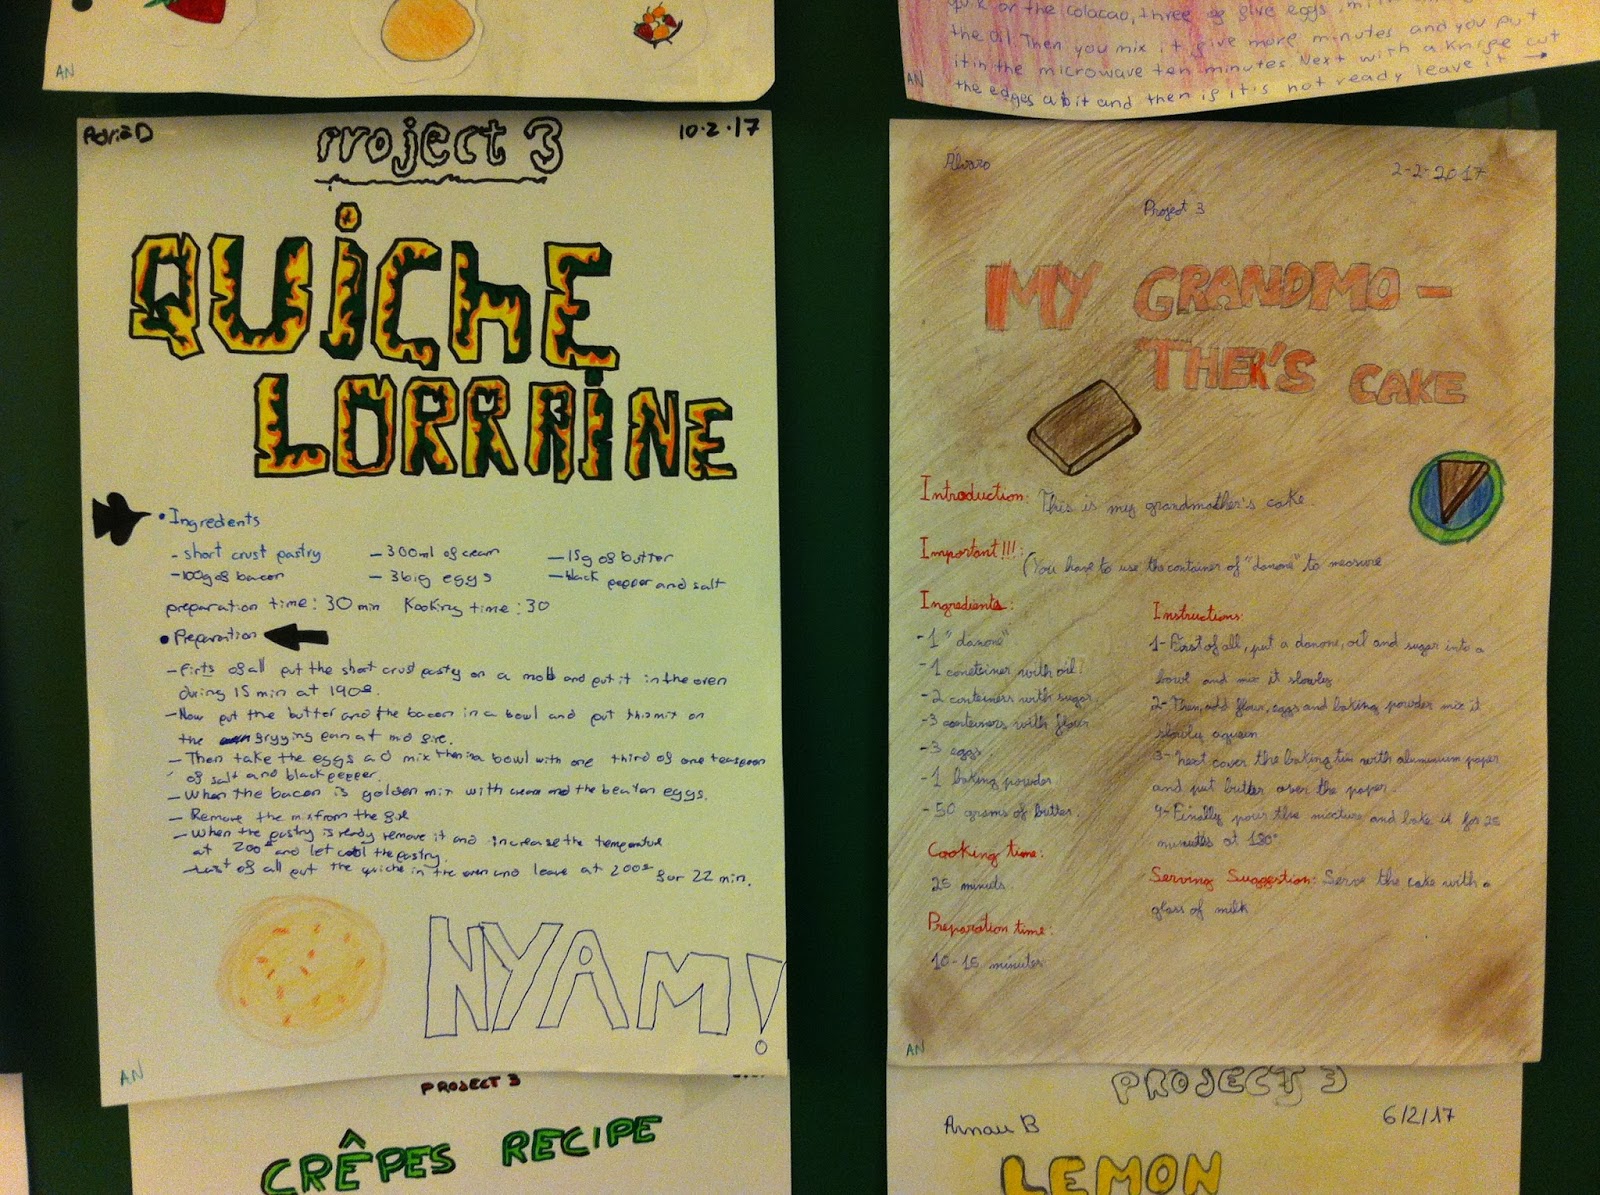 AN
the colacao, three
the oil. Then you mix it five more minutes and you put
it in the microwave ten minutes. Next with a knife cut
the edges a bit and then if it's not ready leave it →
AN
Adrià D
10·2·17
Project 3
QUICHE
LORRAINE
• Ingredents
- short crust pastry
- 300ml of cream
- 15g of butter
- 100g of bacon
- 3 big eggs
- black pepper and salt
preparation time: 30 min Kooking time: 30
• Preparation
- Firts of all put the short crust pasty on a and put it in the oven
during 15 min at 190º.
- Now put the butter and the bacon in a bowl and put this mix on
the
- Then take the eggs mix them in a bowl with one third of one teaspoon
of salt and black pepper.
- When the bacon is golden mix with cream and the beaten eggs.
- Remove the mix from the
- When the pastry is ready remove it and increase the temperature
at 200º and let cool the pastry.
- Last of all put the quiche in the oven and leave at 200º for 22 min.
NYAM!
AN
PROJECT 3
CRÊPES RECIPE
Álvaro
2-2-2017
Project 3
MY GRANDMO-
THER'S CAKE
Introduction: This is my grandmother's cake.
Important!!!: (You have to use the container of "danone" to measure
Ingredients:
- 1 "danone"
- 1 with oil.
- 2 containers with sugar.
- 3 containers with flour
- 3 eggs.
- 1 baking powder
- 50 grams of butter.
Cooking time:
25 minuts.
Preparation time:
10-15 minutes
Instructions:
1- First of all, put a danone, oil and sugar into a
bowl and mix it slowly
2- Then, add flour, eggs and baking powder mix it
slowly again
3- Next cover the baking tin with aluminium paper
and put butter over the paper.
4- Finally pour the mixture and bake it for 25
minutes at 180º
Serving Suggestion: Serve the cake with a
glass of milk
AN
PROJECT 3
Arnau B
6/2/17
LEMON